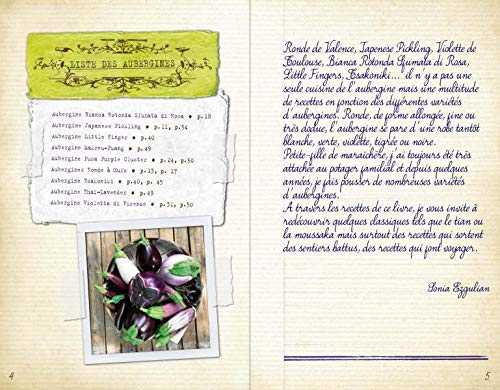 LISTE DES AUBERGINES
Aubergine Bianca Rotonda Sfumata di Rosa ● p.18
Aubergine Japanese Pickling ● p.11, p.54
Aubergine Little Finger ● p.40
● p.49
Aubergine Puca Purple Cluster ● p.24, p.50
Aubergines Ronde à Œufs ● p.13, p. 17
Aubergine Tsakoniki ● p.40, p. 45
Aubergine Thaï-Lavender ● p.45
Aubergine Violetta di Firenze ● p.50
4
Ronde de Valence, Japenese Pickling, Violette de
Toulouse, Bianca Rotonda Sfumata di Rosa,
Little Fingers, Tsakoniki... il n'y a pas une
seule cuisine de l'aubergine mais une multitude
de recettes en fonction des différentes variétés
d'aubergines. Ronde, de forme allongée, fine ou
très dodue, l'aubergine se pare d'une robe tantôt
blanche, verte, violette, tigrée ou noire.
Petite-fille de maraîchère, j'ai toujours été très
attachée au potager familial et depuis quelques
années, je fais pousser de nombreuses variétés
d'aubergines.
A travers les recettes de ce livre, je vous invite à
redécouvrir quelques classiques tels que le tian ou
la moussaka mais surtout des recettes qui sortent
des sentiers battus, des recettes qui font voyager.
Sonia Ezgulian
5